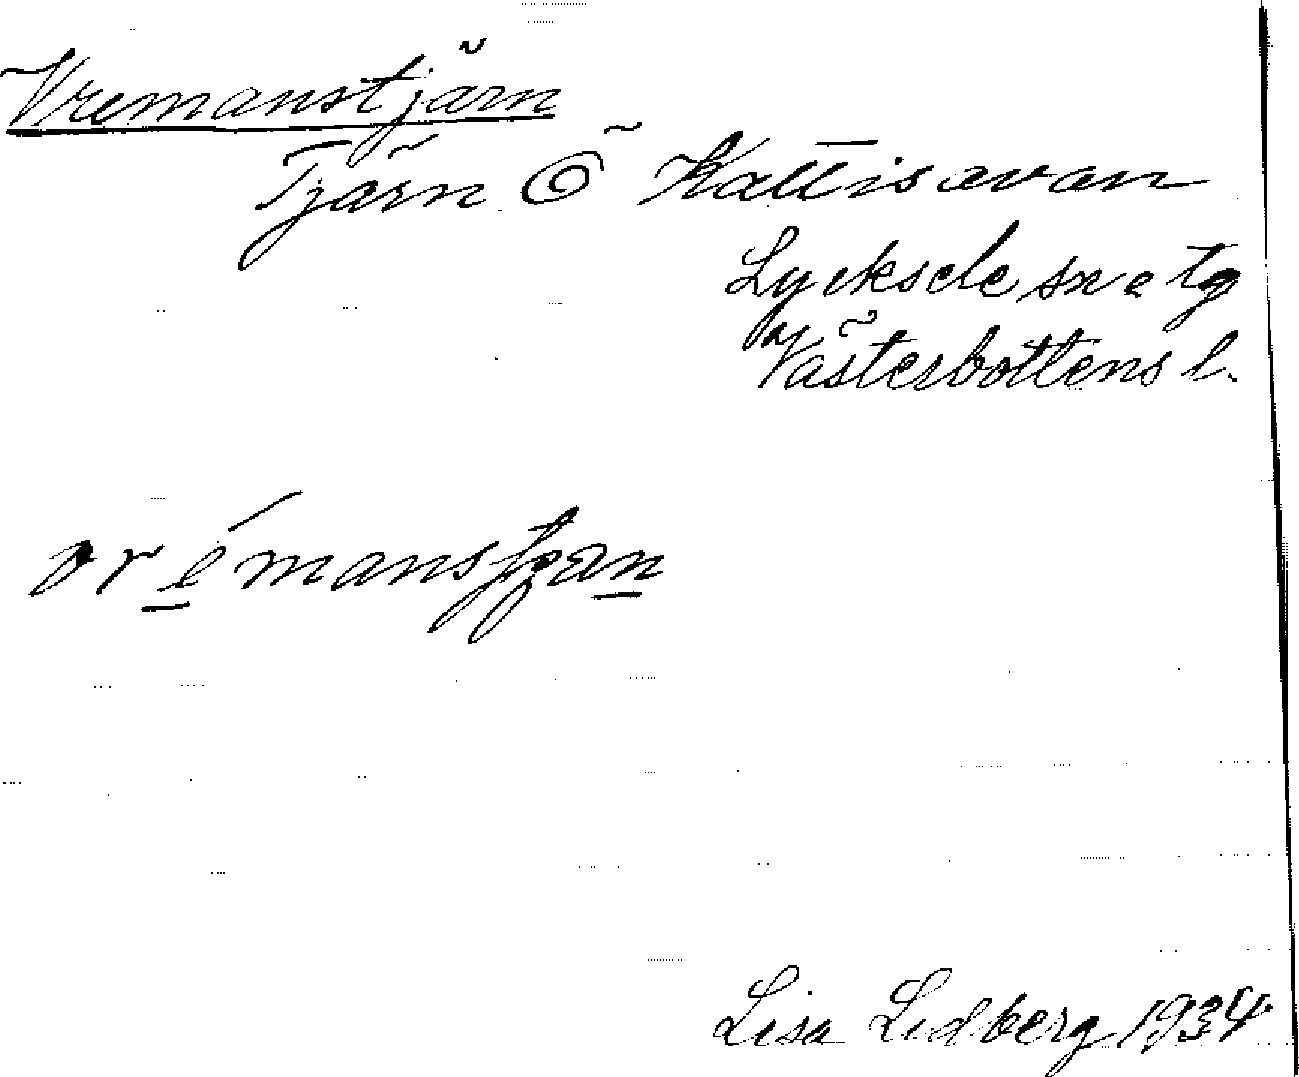 Vremanstjärn
Tjärn Ö Kattisavan
Lycksele sn o tg
Västerbottens l.
Lisa Lidberg 1934